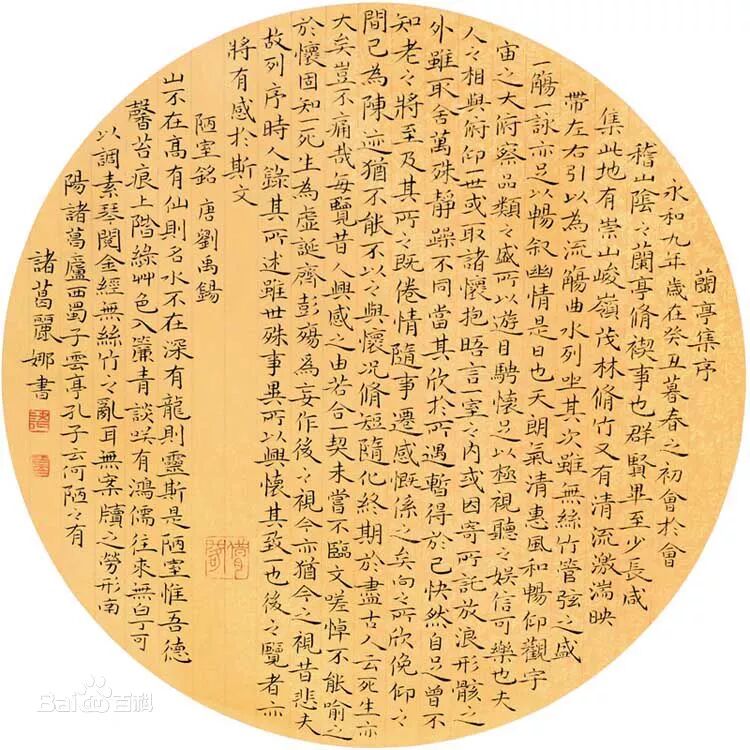 蘭亭集序
永和九年歲在癸丑暮春之初會於會
稽山陰之蘭亭脩禊事也群賢畢至少長咸
集此地有崇山峻嶺茂林脩竹又有清流激湍映
帶左右引以為流觴曲水列坐其次雖無絲竹管弦之盛
一觴一詠亦足以暢叙幽情是日也天朗氣清惠風和暢仰觀宇
宙之大俯察品類之盛所以遊目騁懷足以極視聽之娛信可樂也夫
人之相與俯仰一世或取諸懷抱晤言一室之內或因寄所託放浪形骸之
外雖取舍萬殊靜躁不同當其欣於所遇暫得於己快然自足曾不
知老之將至及其所之既倦情隨事遷感慨係之矣向之所欣俛仰之
間已為陳迹猶不能不以之興懷況脩短隨化終期於盡古人云死生亦
大矣豈不痛哉每覽昔人興感之由若合一契未嘗不臨文嗟悼不能喻之
於懷固知一死生為虛誕齊彭殤為妄作後之視今亦猶今之視昔悲夫
故列序時人錄其所述雖世殊事異所以興懷其致一也後之覽者亦
將有感於斯文
陋室銘 唐劉禹錫
山不在高有仙則名水不在深有龍則靈斯是陋室惟吾德
馨苔痕上階綠艸色入簾青談咲有鴻儒往來無白丁可
以調素琴閱金經無絲竹之亂耳無案牘之勞形南
陽諸葛廬西蜀子雲亭孔子云何陋之有
諸葛麗娜書
Baidu百科